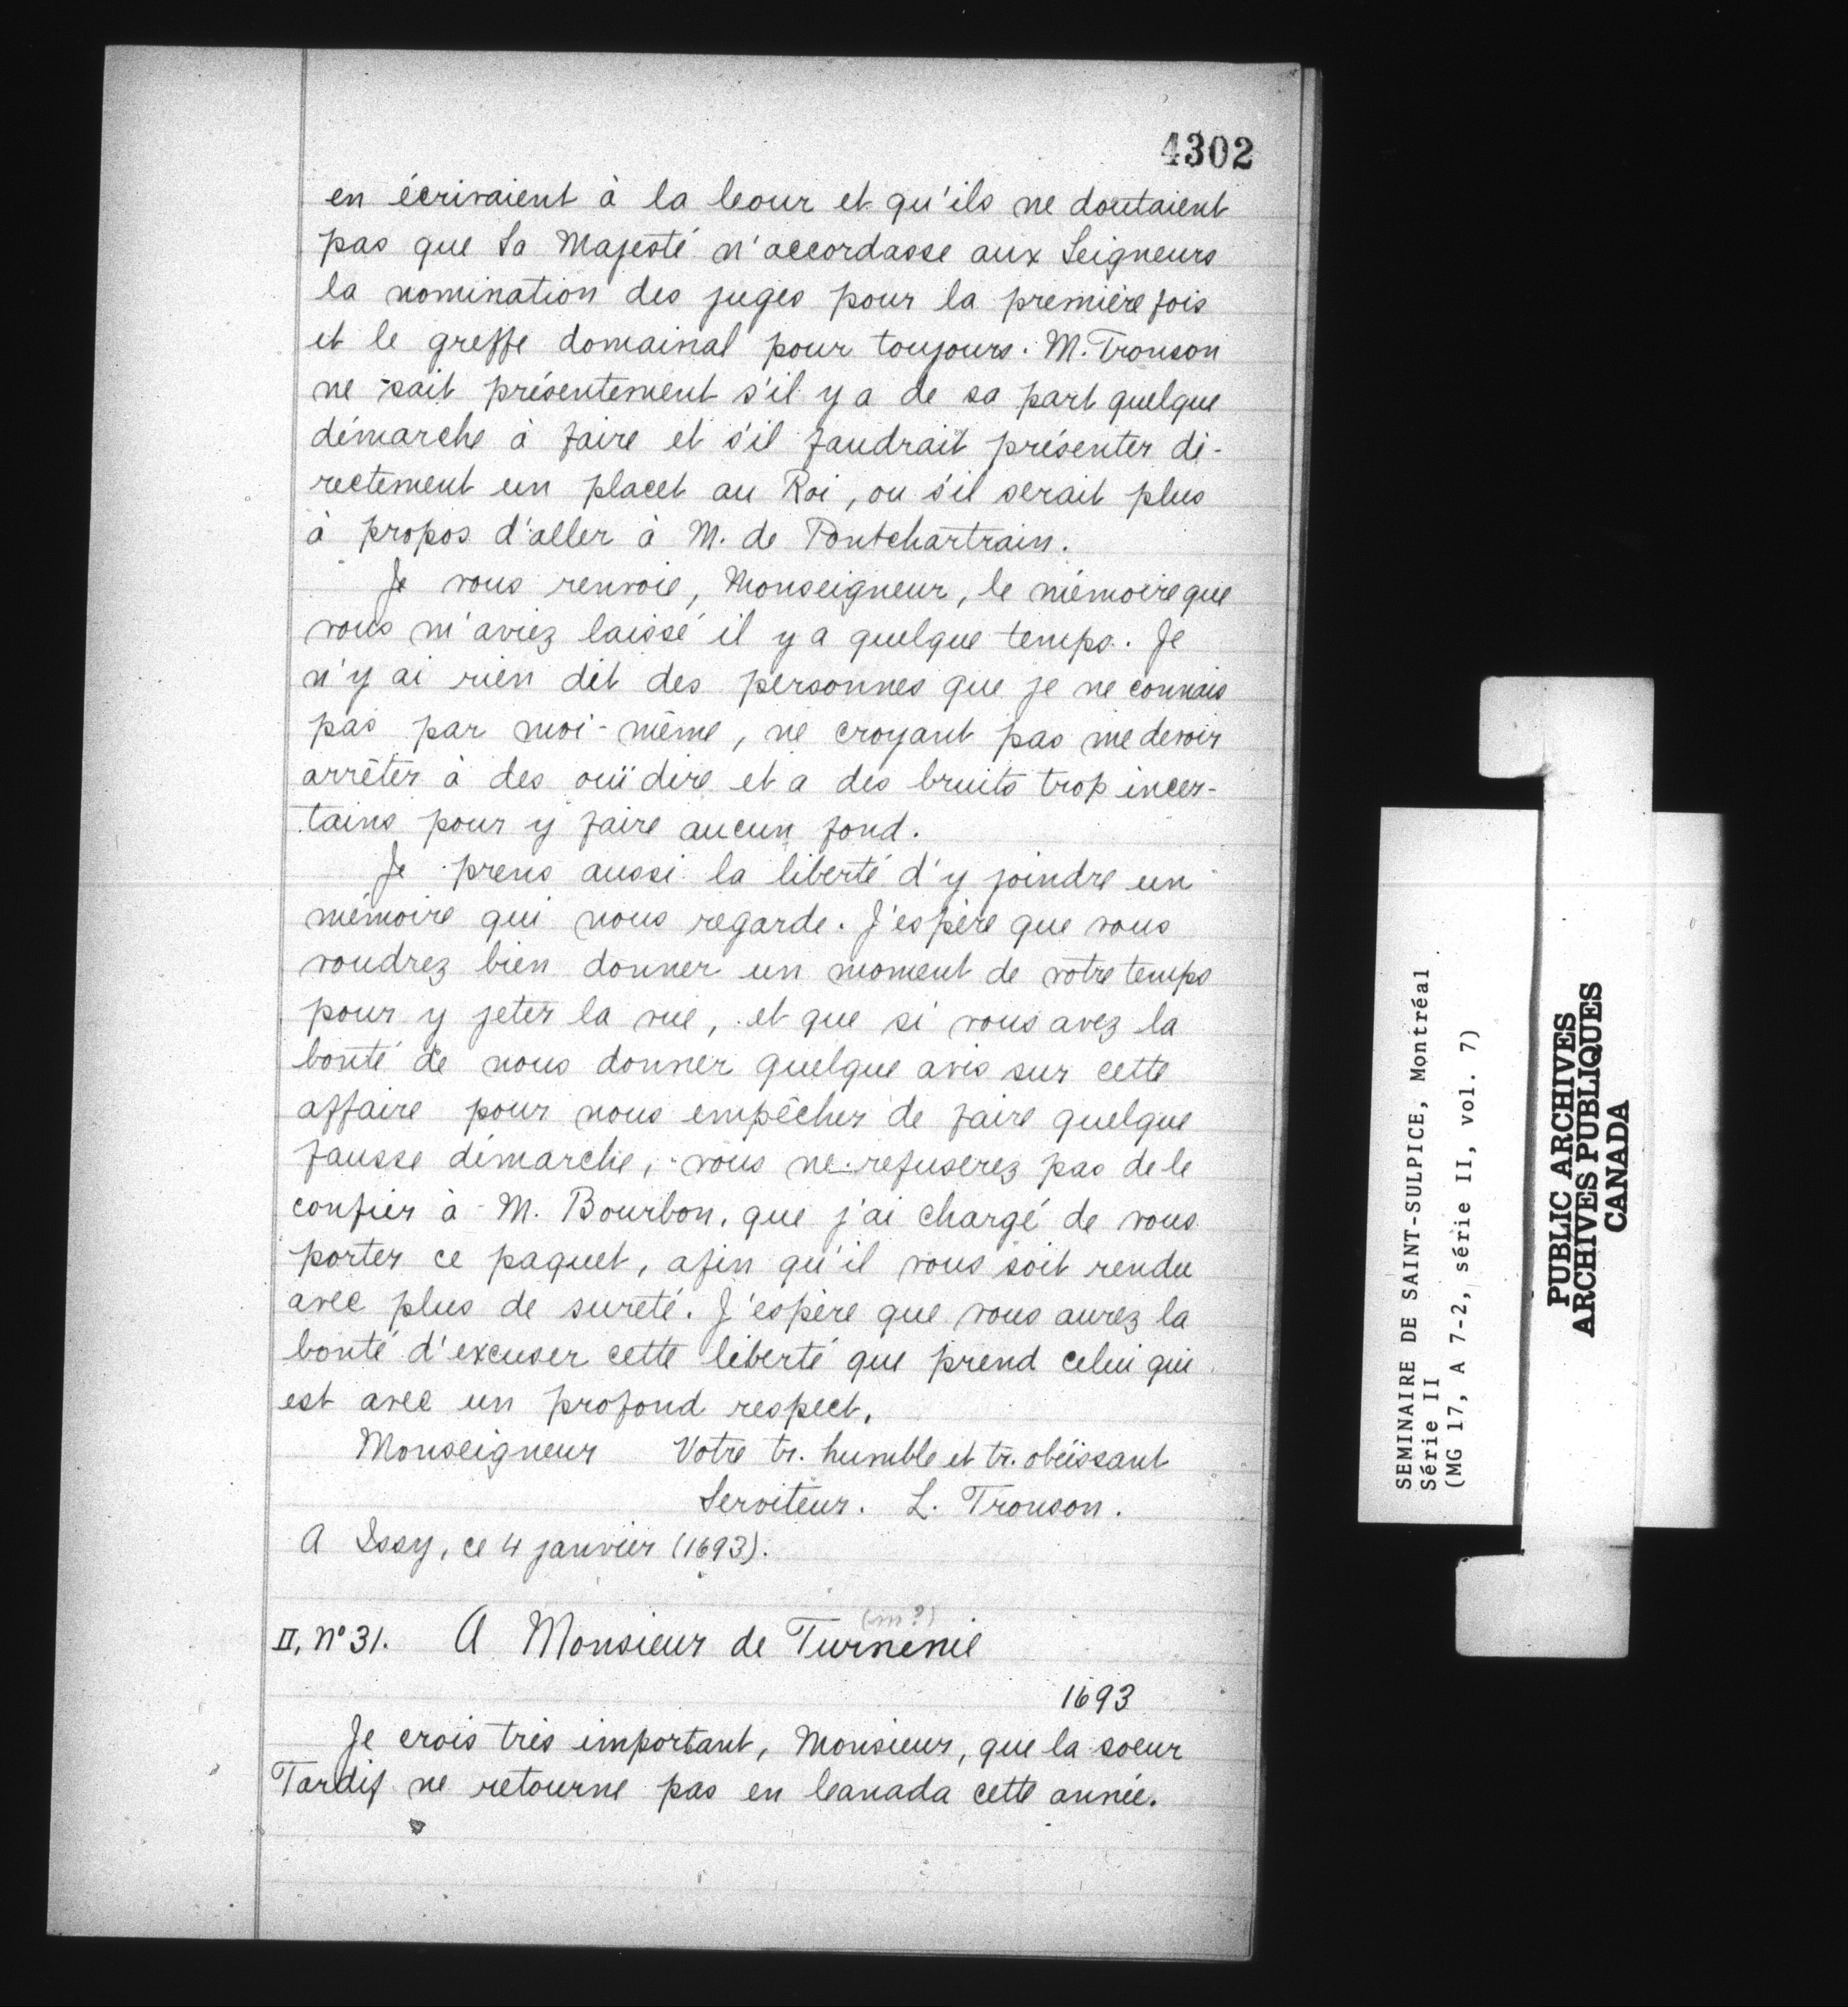 4302
en écrivaient à la Cour et qu'ils ne doutaient
pas que Sa Majesté n'accordasse aux Seigneurs
la nomination des juges pour la première fois
et le greffe domainal pour toujours. M. Tronson
ne sait présentement s'il y a de sa part quelque
démarche à faire et s'il faudrait présenter di-
rectement un placet au Roi, ou s'il serait plus
à propos d'aller à M. de Pontchartrain.
Je vous renvoie, Monseigneur, le mémoire que
vous m'aviez laissé il y a quelque temps. Je
n'y ai rien dit des personnes que je ne connais
pas par moi-même, ne croyant pas me devoir
arrêter à des ouï dire et a des bruits trop incer-
tains pour y faire aucun fond.
Je prens aussi la liberté d'y joindre un
mémoire qui nous regarde. J'espère que vous
voudrez bien donner un moment de votre temps
pour y jeter la vue, et que si vous avez la
bonté de nous donner quelque avis sur cette
affaire pour nous empêcher de faire quelque
fausse démarche, vous ne refuserez pas de le
confier à M. Bourbon, que j'ai chargé de vous
porter ce paquet, afin qu'il vous soit rendu
avec plus de sureté. J'espère que vous aurez la
bonté d'excuser cette liberté que prend celui qui
est avec un profond respect,
Monseigneur Votre tr. humble et tr. obéissant
Serviteur. L. Tronson.
A Issy, ce 4 janvier (1693).
(m?)
II, N° 31. A Monsieur de Turnenie
1693
Je crois très important, Monsieur, que la soeur
Tardif ne retourne pas en Canada cette année.
SEMINAIRE DE SAINT-SULPICE, Montréal
Série II
(MG 17, A 7-2, série II, vol. 7)
PUBLIC ARCHIVES
ARCHIVES PUBLIQUES
CANADA